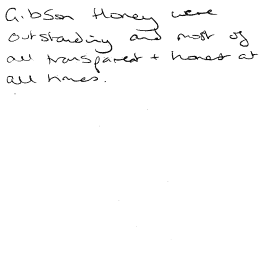 Gibson Honey were
outstanding and most of
all transparent + honest at
all times.